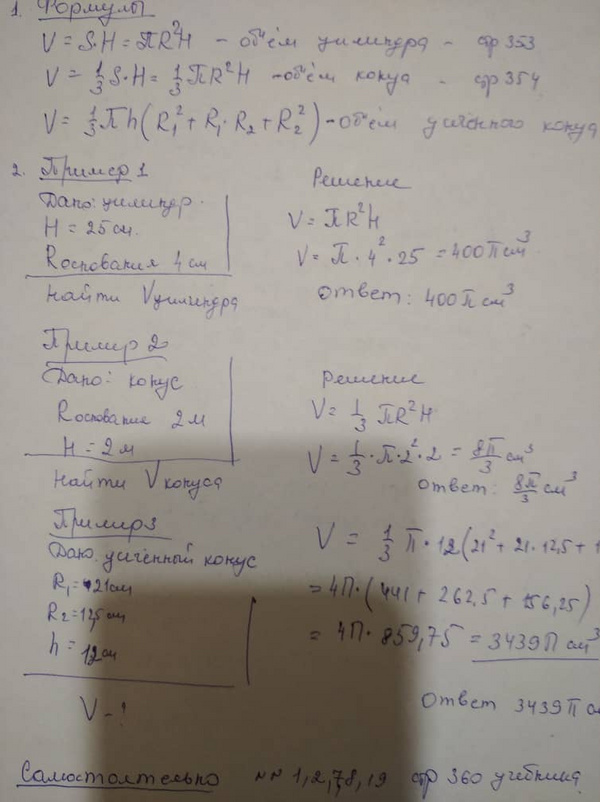 1. Формулы
V = S·H = πR²H – объём цилиндра – стр 353
V = 1/3 S·H = 1/3 πR²H – объём конуса – стр 354
V = 1/3 πh(R₁² + R₁·R₂ + R₂²) – объём усечённого конуса
2. Пример 1
Дано: цилиндр.
H = 25 см.
Rоснования 4 см
Найти Vцилиндра
Решение
V = πR²H
V = π · 4² · 25 = 400π см³
Ответ: 400π см³
Пример 2
Дано: конус
Rоснование 2 м
H = 2 м
Найти V конуса
Решение
V = 1/3 πR²H
V = 1/3 · π · 2² · 2 = 8π/3 см³
Ответ: 8π/3 см³
Пример 3
Дано. усечённый конус
R₁ = 21 см
R₂ = 12,5 см
h = 12 см
V – ?
V = 1/3 π · 12(21² + 21 · 12,5 + 1
= 4π · (441 + 262,5 + 156,25)
= 4π · 859,75 = 3439π см³
Ответ 3439π см
Самостоятельно №№ 1, 2, 7, 8, 19 стр 360 учебника